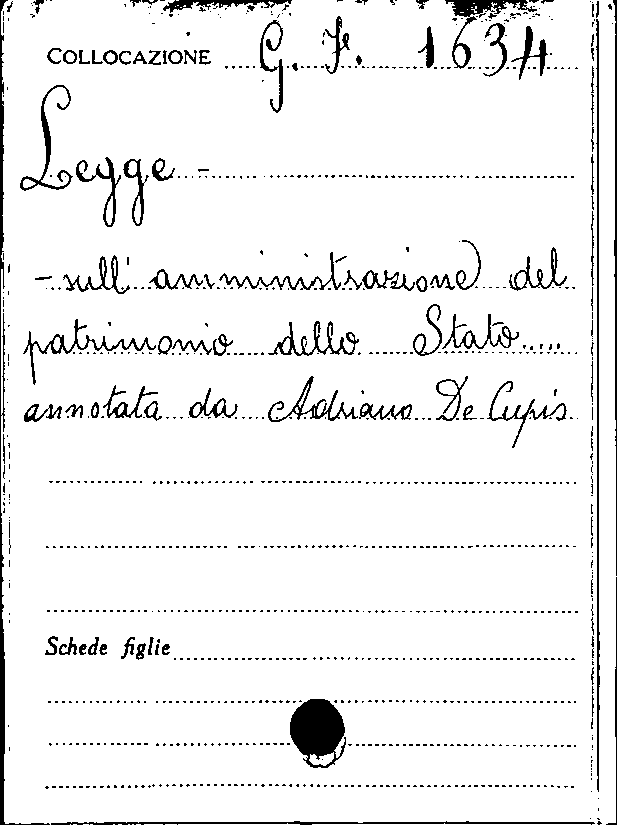 COLLOCAZIONE G. F. 1634
Legge -
- sull' amministrazione del
patrimonio dello Stato.....
annotata da Adriano De Cupis
Schede figlie